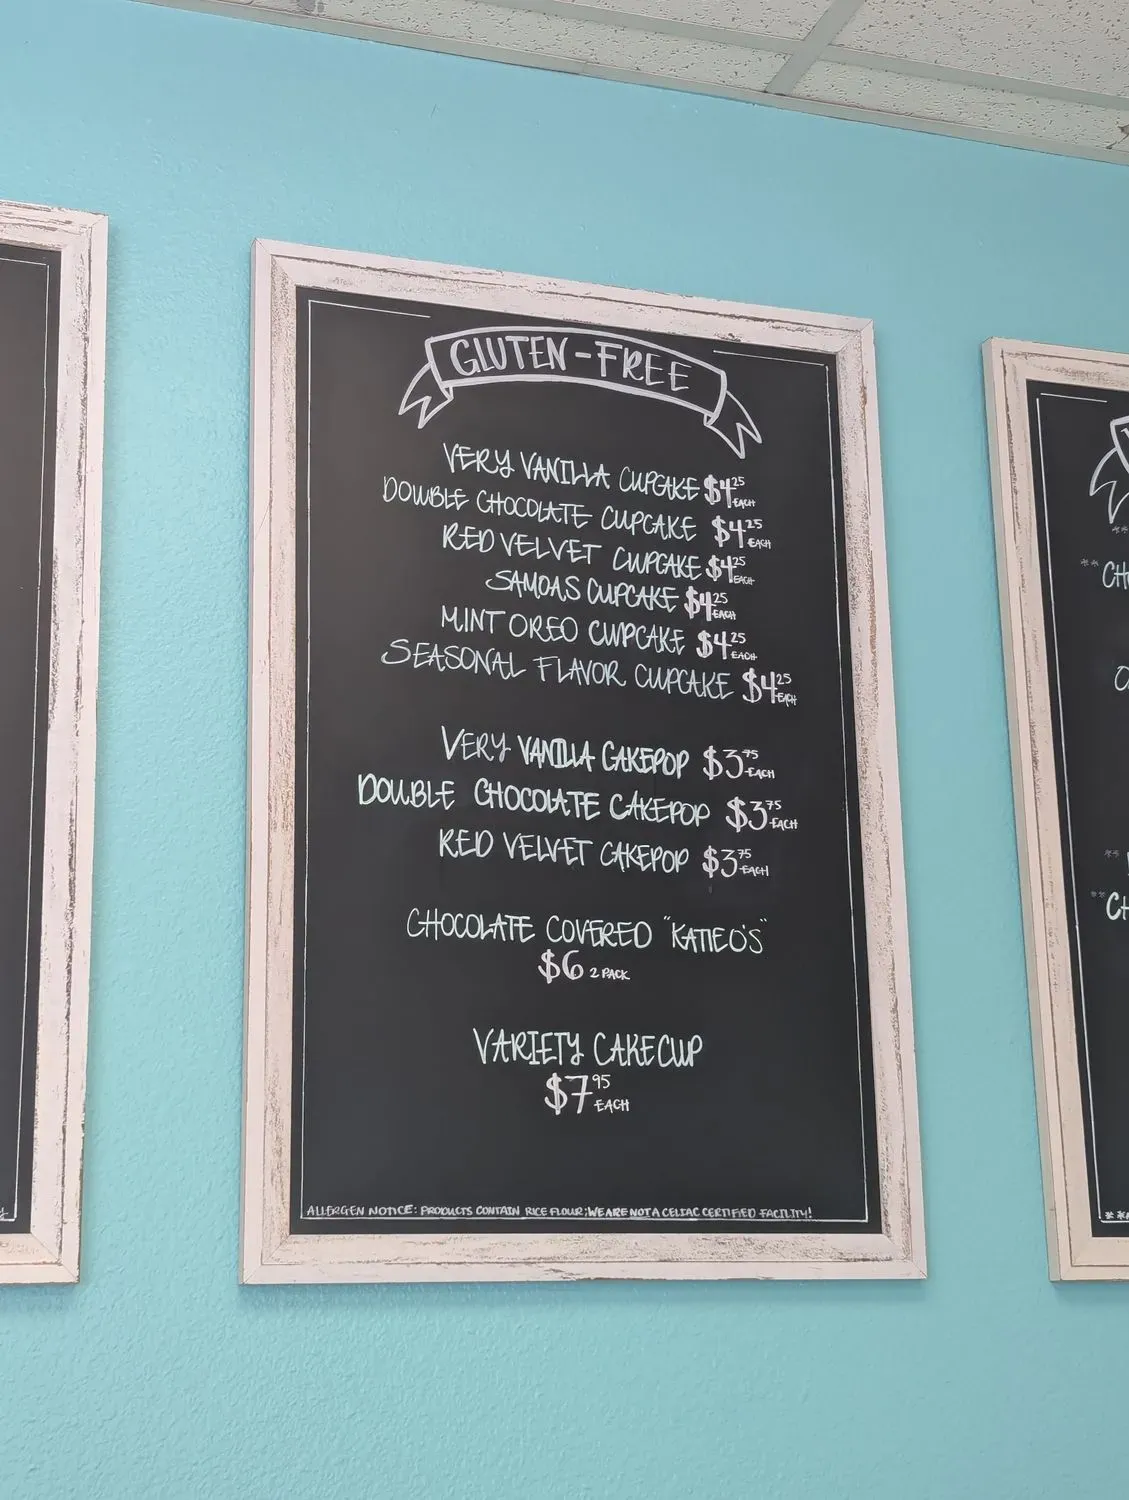 GLUTEN-FREE
VERY VANILLA CUPCAKE $4.25 EACH
DOUBLE CHOCOLATE CUPCAKE $4.25 EACH
RED VELVET CUPCAKE $4.25 EACH
SAMOAS CUPCAKE $4.25 EACH
MINT OREO CUPCAKE $4.25 EACH
SEASONAL FLAVOR CUPCAKE $4.25 EACH
VERY VANILLA CAKEPOP $3.75 EACH
DOUBLE CHOCOLATE CAKEPOP $3.75 EACH
RED VELVET CAKEPOP $3.75 EACH
CHOCOLATE COVERED "KATIEO'S"
$6 2 PACK
VARIETY CAKECUP
$7.95 EACH
ALLERGEN NOTICE: PRODUCTS CONTAIN RICE FLOUR; WE ARE NOT A CELIAC CERTIFIED FACILITY!